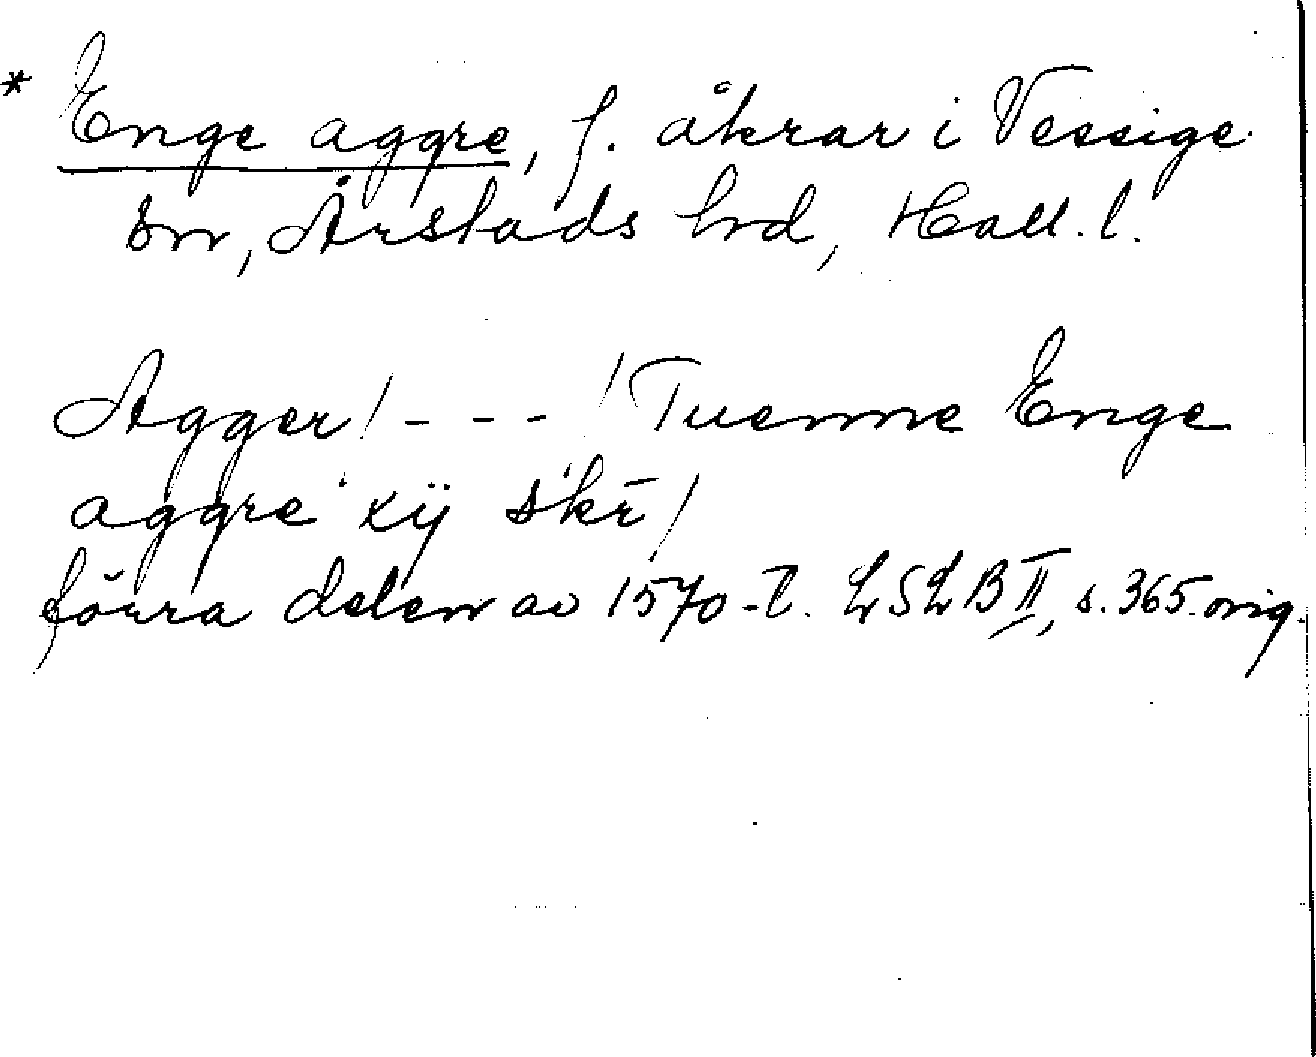 * Enge aggre, f. åkrar i Vessige
sn, Årstads hrd, Hall. l.
Agger/ - - - / Tuenne Enge
aggre xij skr̄/
förra delen av 1570-t. LSLB II, s. 365. orig.